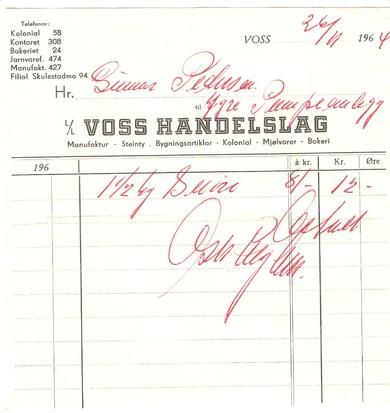 Telefonar:
Kolonial 58
Kontoret 308
Bakeriet 24
Jarnvaref. 474
Manufakt. 427
Filial Skulestadmo 94
VOSS 26/11 1964
Hr. Gunnar Pedersen.
til Ygre Pumpeanlegg
L/L VOSS HANDELSLAG
Manufaktur - Steinty . Bygningsartiklar - Kolonial - Mjølvaror - Bakeri
196 à kr. Kr. Øre
1 1/2 kg 8/- 12 -